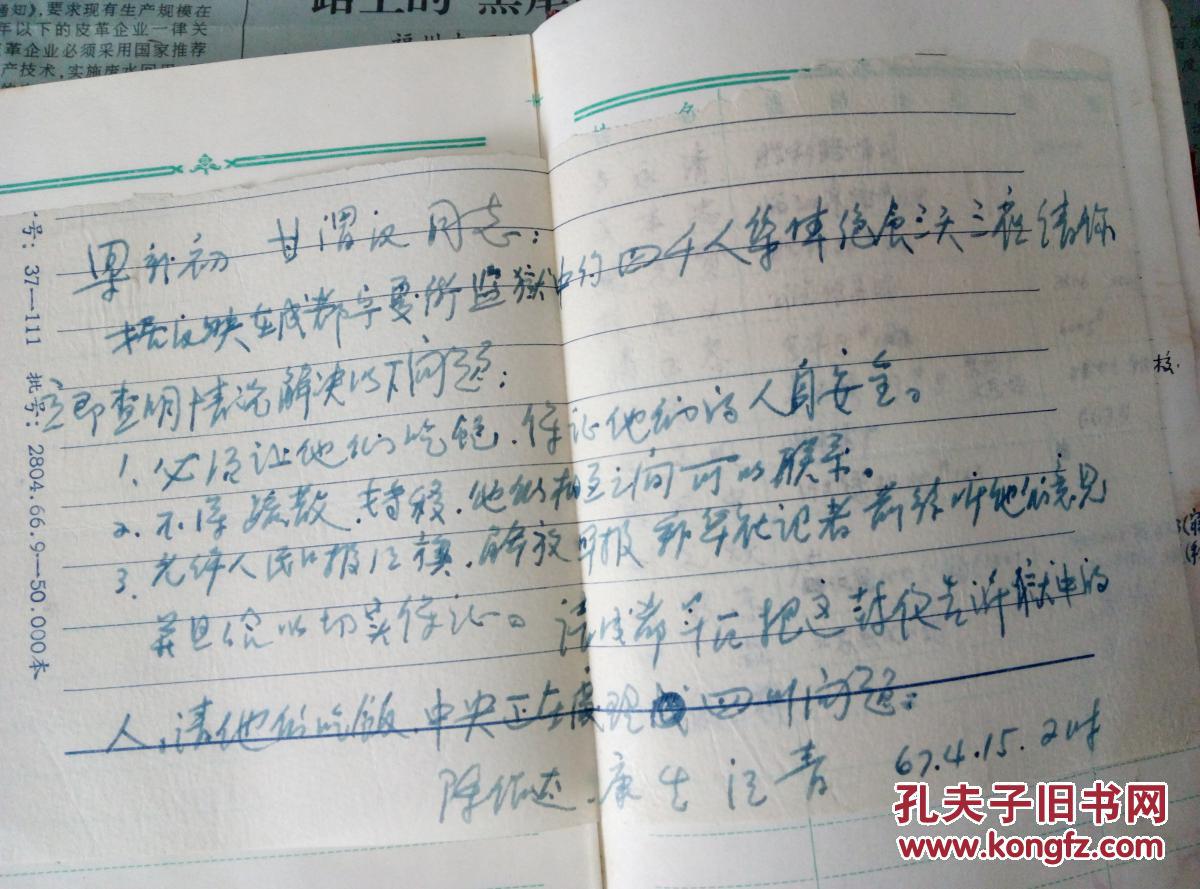 通知》,要求现有生产规模在
年以下的皮革企业一律关
革企业必须采用国家推荐
产技术,实施废水回
路上的"黑
号: 37—111 批号: 2804.66.9—50.000本
梁兴初 甘渭汉同志:
据反映在成都宁夏街监狱中约四千人集体绝食三天三夜请你
立即查明情况解决以下问题:
1. 必须让他们吃饱、保证他们的人身安全。
2. 不得疏散、转移、他们相互之间可以联系。
3. 允许人民日报红旗、解放军报 新华社记者前往听他们意见
并且给以切实保证。请成都军区把这封信告诉狱中的
人,请他们吃饭、中央正在处理 四川问题;
陈伯达、康生 江青 67.4.15.2时
孔夫子旧书网
www.kongfz.com